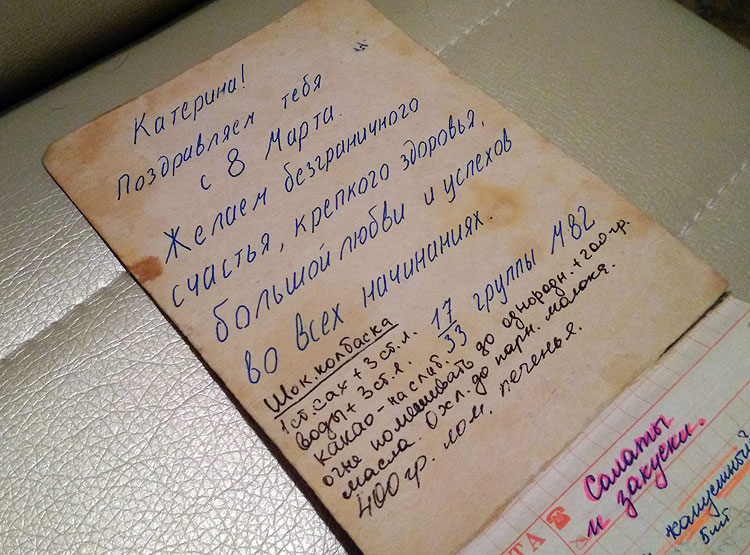 Катерина!
Поздравляем тебя
с 8 Марта.
Желаем безграничного
счастья, крепкого здоровья,
большой любви и успехов
во всех начинаниях.
17
33 группы М82
Шок. колбаска
1 ст. сах + 3 ст. л.
воды + 3 ст. л.
какао - на слаб.
огне помешивать до однородн. + 200 гр.
масла. Охл. до парн. молока.
400 гр. лом. печенья.
ТА ☎
Салаты
и закуски.
капустный